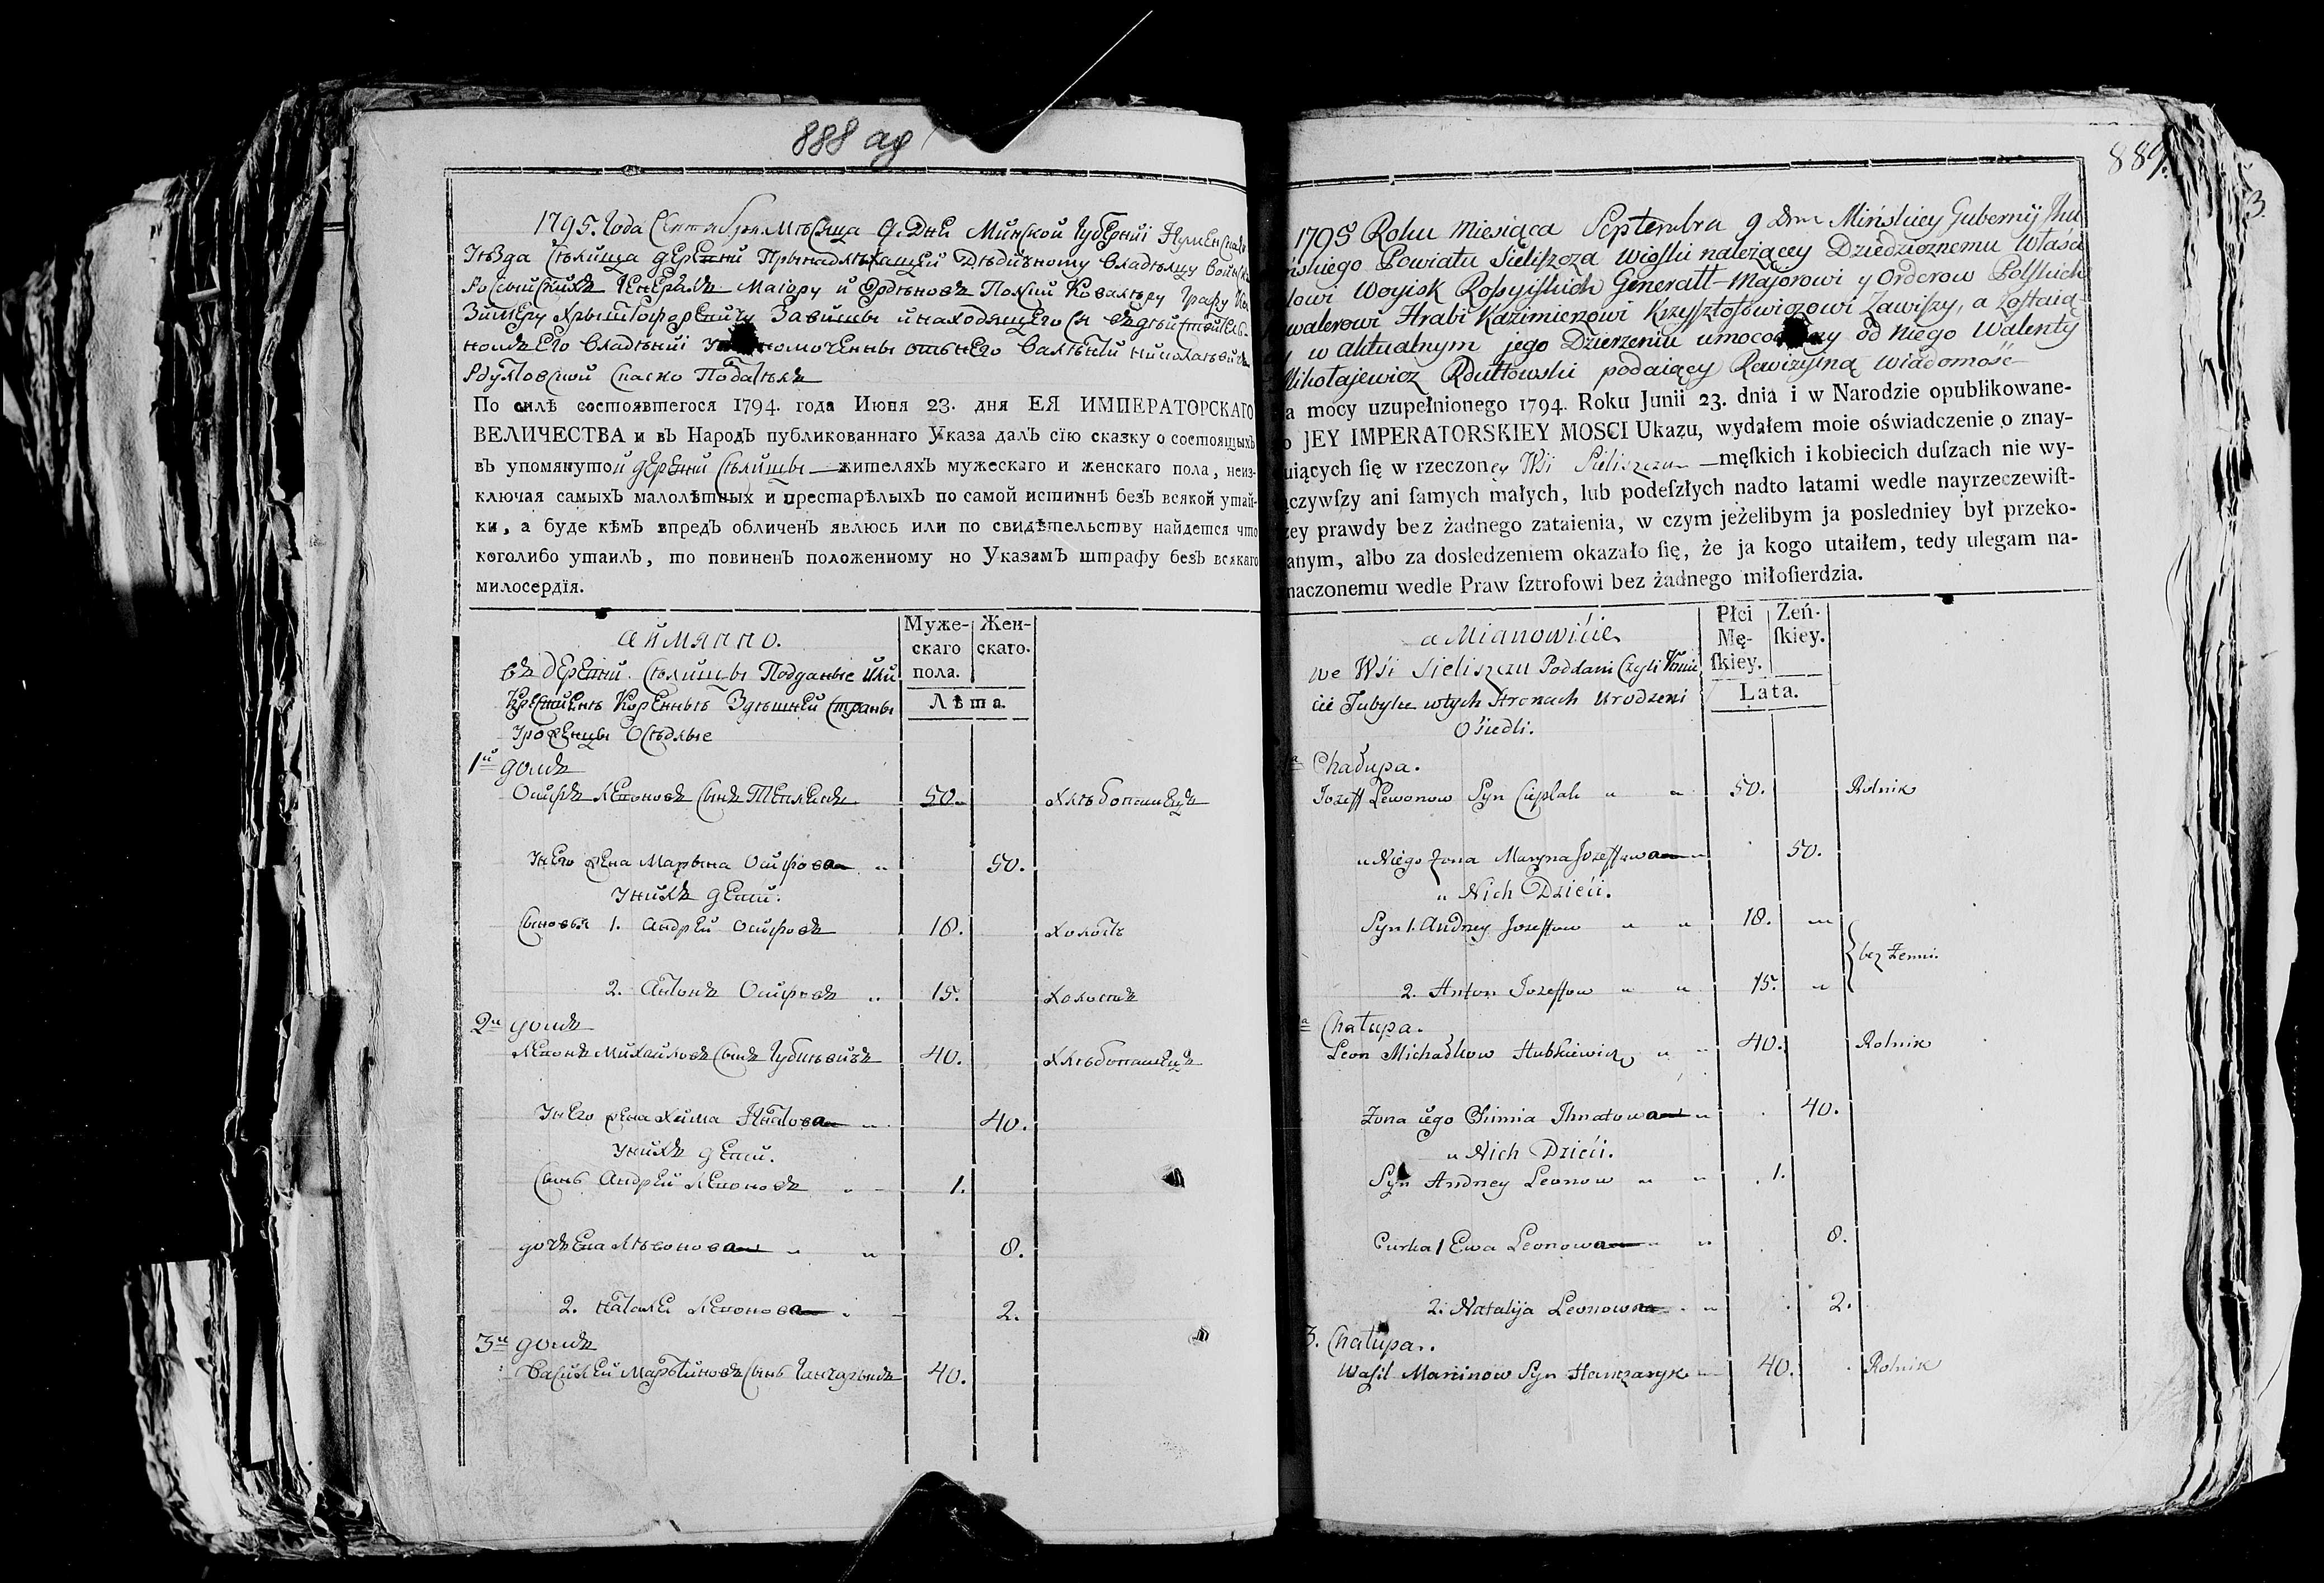 888 аѵ
1795. Года Сентября Мѣсяца 9. Дня Минской Губерніи Игуменскаго
Уѣзда Сѣлища деревни Принадлѣжащей Дѣдичному Владѣлцу Войскъ
Росыйскихъ Генералъ Маіору и Ордѣновъ Полских Ковалѣру Графу Ка
Зимѣру Хрыштофоревичу Завишы и находящегося
номъ Его Владѣніи от него Валѣнтий Николаѣвичъ
Рдултовской Скаско Податѣль
По силѣ состоявшегося 1794. года Июня 23. дня ЕЯ ИМПЕРАТОРСКАГО
ВЕЛИЧЕСТВА и въ Народъ публикованнаго Указа далъ сїю сказку о состоящыхъ
въ упомянутой деревни Сѣлищы жителяхъ мужескаго и женскаго пола, неиз-
ключая самыхъ малолѣтныхъ и престарѣлыхъ по самой истиннѣ безъ всякой утай-
ки, а буде кѣмъ впредь обличенъ явлюсь или по свидѣтельству найдется что
коголибо утаилъ, то повиненъ положенному по Указамъ штрафу безъ всякаго
милосердїя.
аймянно.
Муже-
скаго
пола.
Жен-
скаго.
Лѣта.
въ деревни Сѣлищы Подданые или
Крестиенѣ Кореннытѣ Здѣшней страны
Уроженцы Осѣдлые
1й домъ
Осифъ Левоновъ сынъ Теплякъ 50. хлѣбопашецъ
У него жена Марына Осифова 50.
У нихъ дети.
Сыновья 1. Андрей Осифовъ 18. холостъ
2. Антонъ Осифовъ 15. холостъ
2й домъ
Левонъ Михайловъ сынъ Губкѣвичъ 40. хлѣбопашецъ
У него жена Хима Игнатова 40.
У нихъ дети.
Сынъ Андрей Левоновъ 1.
дочь Ева Лѣвонова 8.
2. Наталя Левонова 2.
3й домъ
Василей Мартиновъ сынъ Ганчарыкъ 40.
889.
3.
1795 Roku Miesiąca Septembra 9 dnia Mińskiey Gubernij Ihu
mskiego Powiatu Sieliszcza wioski należącey Dziedzicznemu Właści
lowi Woyisk Rossyiskich Generałł-Majorowi y Orderow Polskich
walerowi Hrabi Kazimierzowi Krzysztofowiczowi Zawiszy, a zostaią
w aktualnym jego Dzierżeniu umoco od niego Walenty
Mikołajewicz Rdułtowski podaiący Rewizyiną wiadomość
a mocy uzupełnionego 1794. Roku Junii 23. dnia i w Narodzie opublikowane-
o JEY IMPERATORSKIEY MOSCI Ukazu, wydałem moie oświadczenie o znay-
uiących ſię w rzeczoney Wsi Sieliszczu męſkich i kobiecich duſzach nie wy-
ączywſzy ani ſamych małych, lub podeſzłych nadto latami wedle nayrzeczewiſt-
zey prawdy bez żadnego zataienia, w czym jeżelibym ja posledniey był przeko-
anym, albo za dosledzeniem okazało ſię, że ja kogo utaiłem, tedy ulegam na-
naczonemu wedle Praw ſztrofowi bez żadnego miłoſierdzia.
a Mianowićie
Płci
Mę-
ſkiey.
Zeń-
ſkiey.
Lata.
we Wśi Sieliszczu Poddani Czyli
cie Tubylce w tych Stronach Urodzeni
Ośiedli.
Chałupa.
Jozeff Lewonow Syn Cieplak 50. Rolnik
u Niego Zona Maryna Jozeffowa 50.
u Nich Dzieći.
Syn 1. Andrzey Jozeffow 18.
bez Zenni.
2. Anton Jozeffow 15.
Chałupa.
Leon Michałkow Hubkiewicz 40. Rolnik
Zona iego Chimia Ihnatowa 40.
u Nich Dzieći.
Syn Andrzey Leonow 1.
Curka 1 Ewa Leonowa 8.
2. Natalija Leonowna 2.
3. Chałupa.
Wasil Marcinow Syn Hanczaryk 40. Rolnik